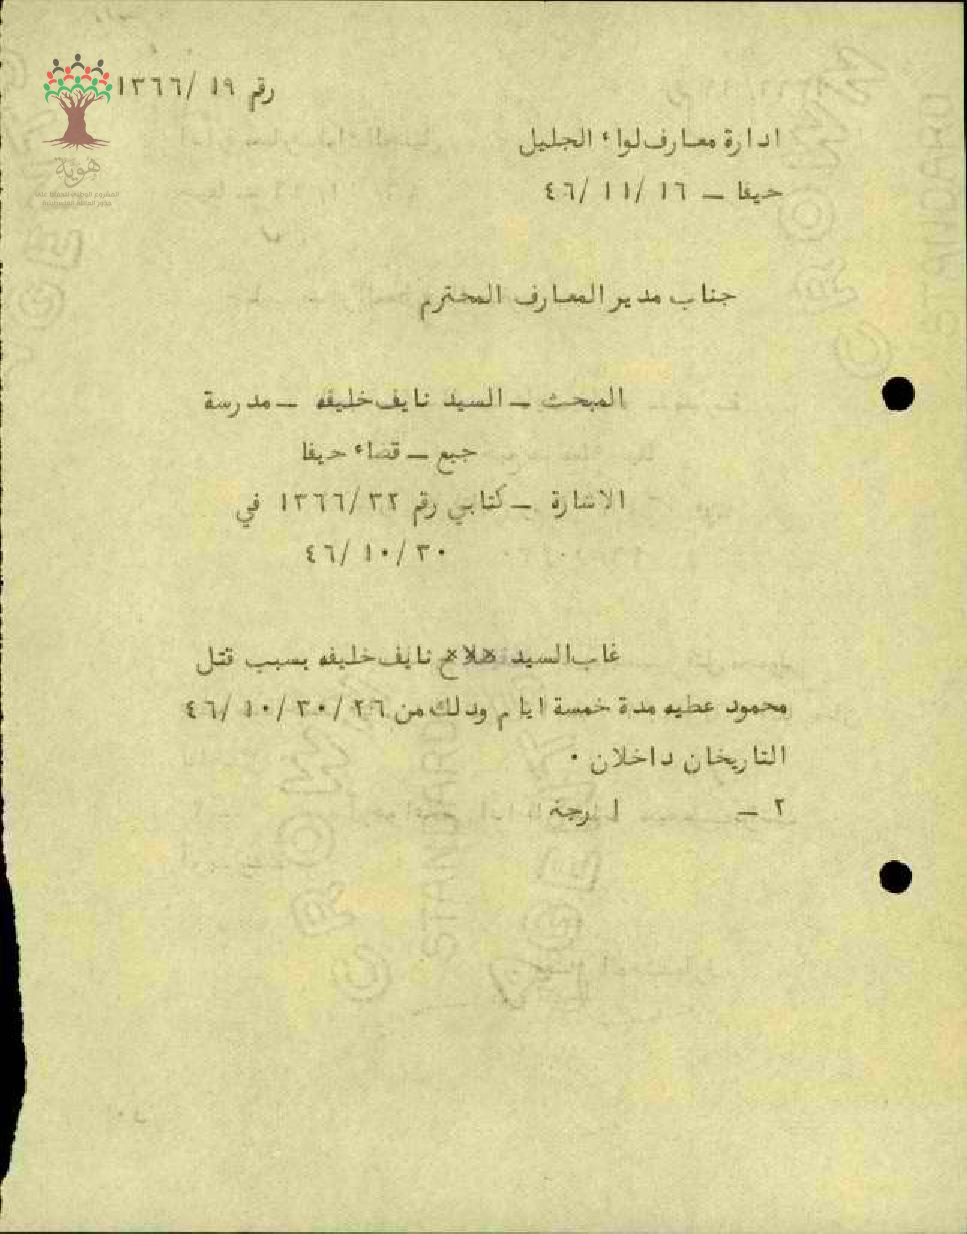 رقم ١٩ /١٣٦٦
ادارة معارف لواء الجليل
حيفا – ١٦ /١١ /٤٦
هوية
جناب مدير المعارف المحترم
المبحث – السيد نايف خليفه – مدرسة
جبع – قضاء حيفا
الاشارة – كتابي رقم ١٣٦٦/٣٢ في
٤٦/ ١٠/ ٣٠
غاب السيد نايف خليفه بسبب قتل
محمود عطيه مدة خمسة ايام وذلك من ٢٦ /٣٠ /١٠ /٤٦
التاريخان داخلان ٠
٢ –
CROWN
STANDARD